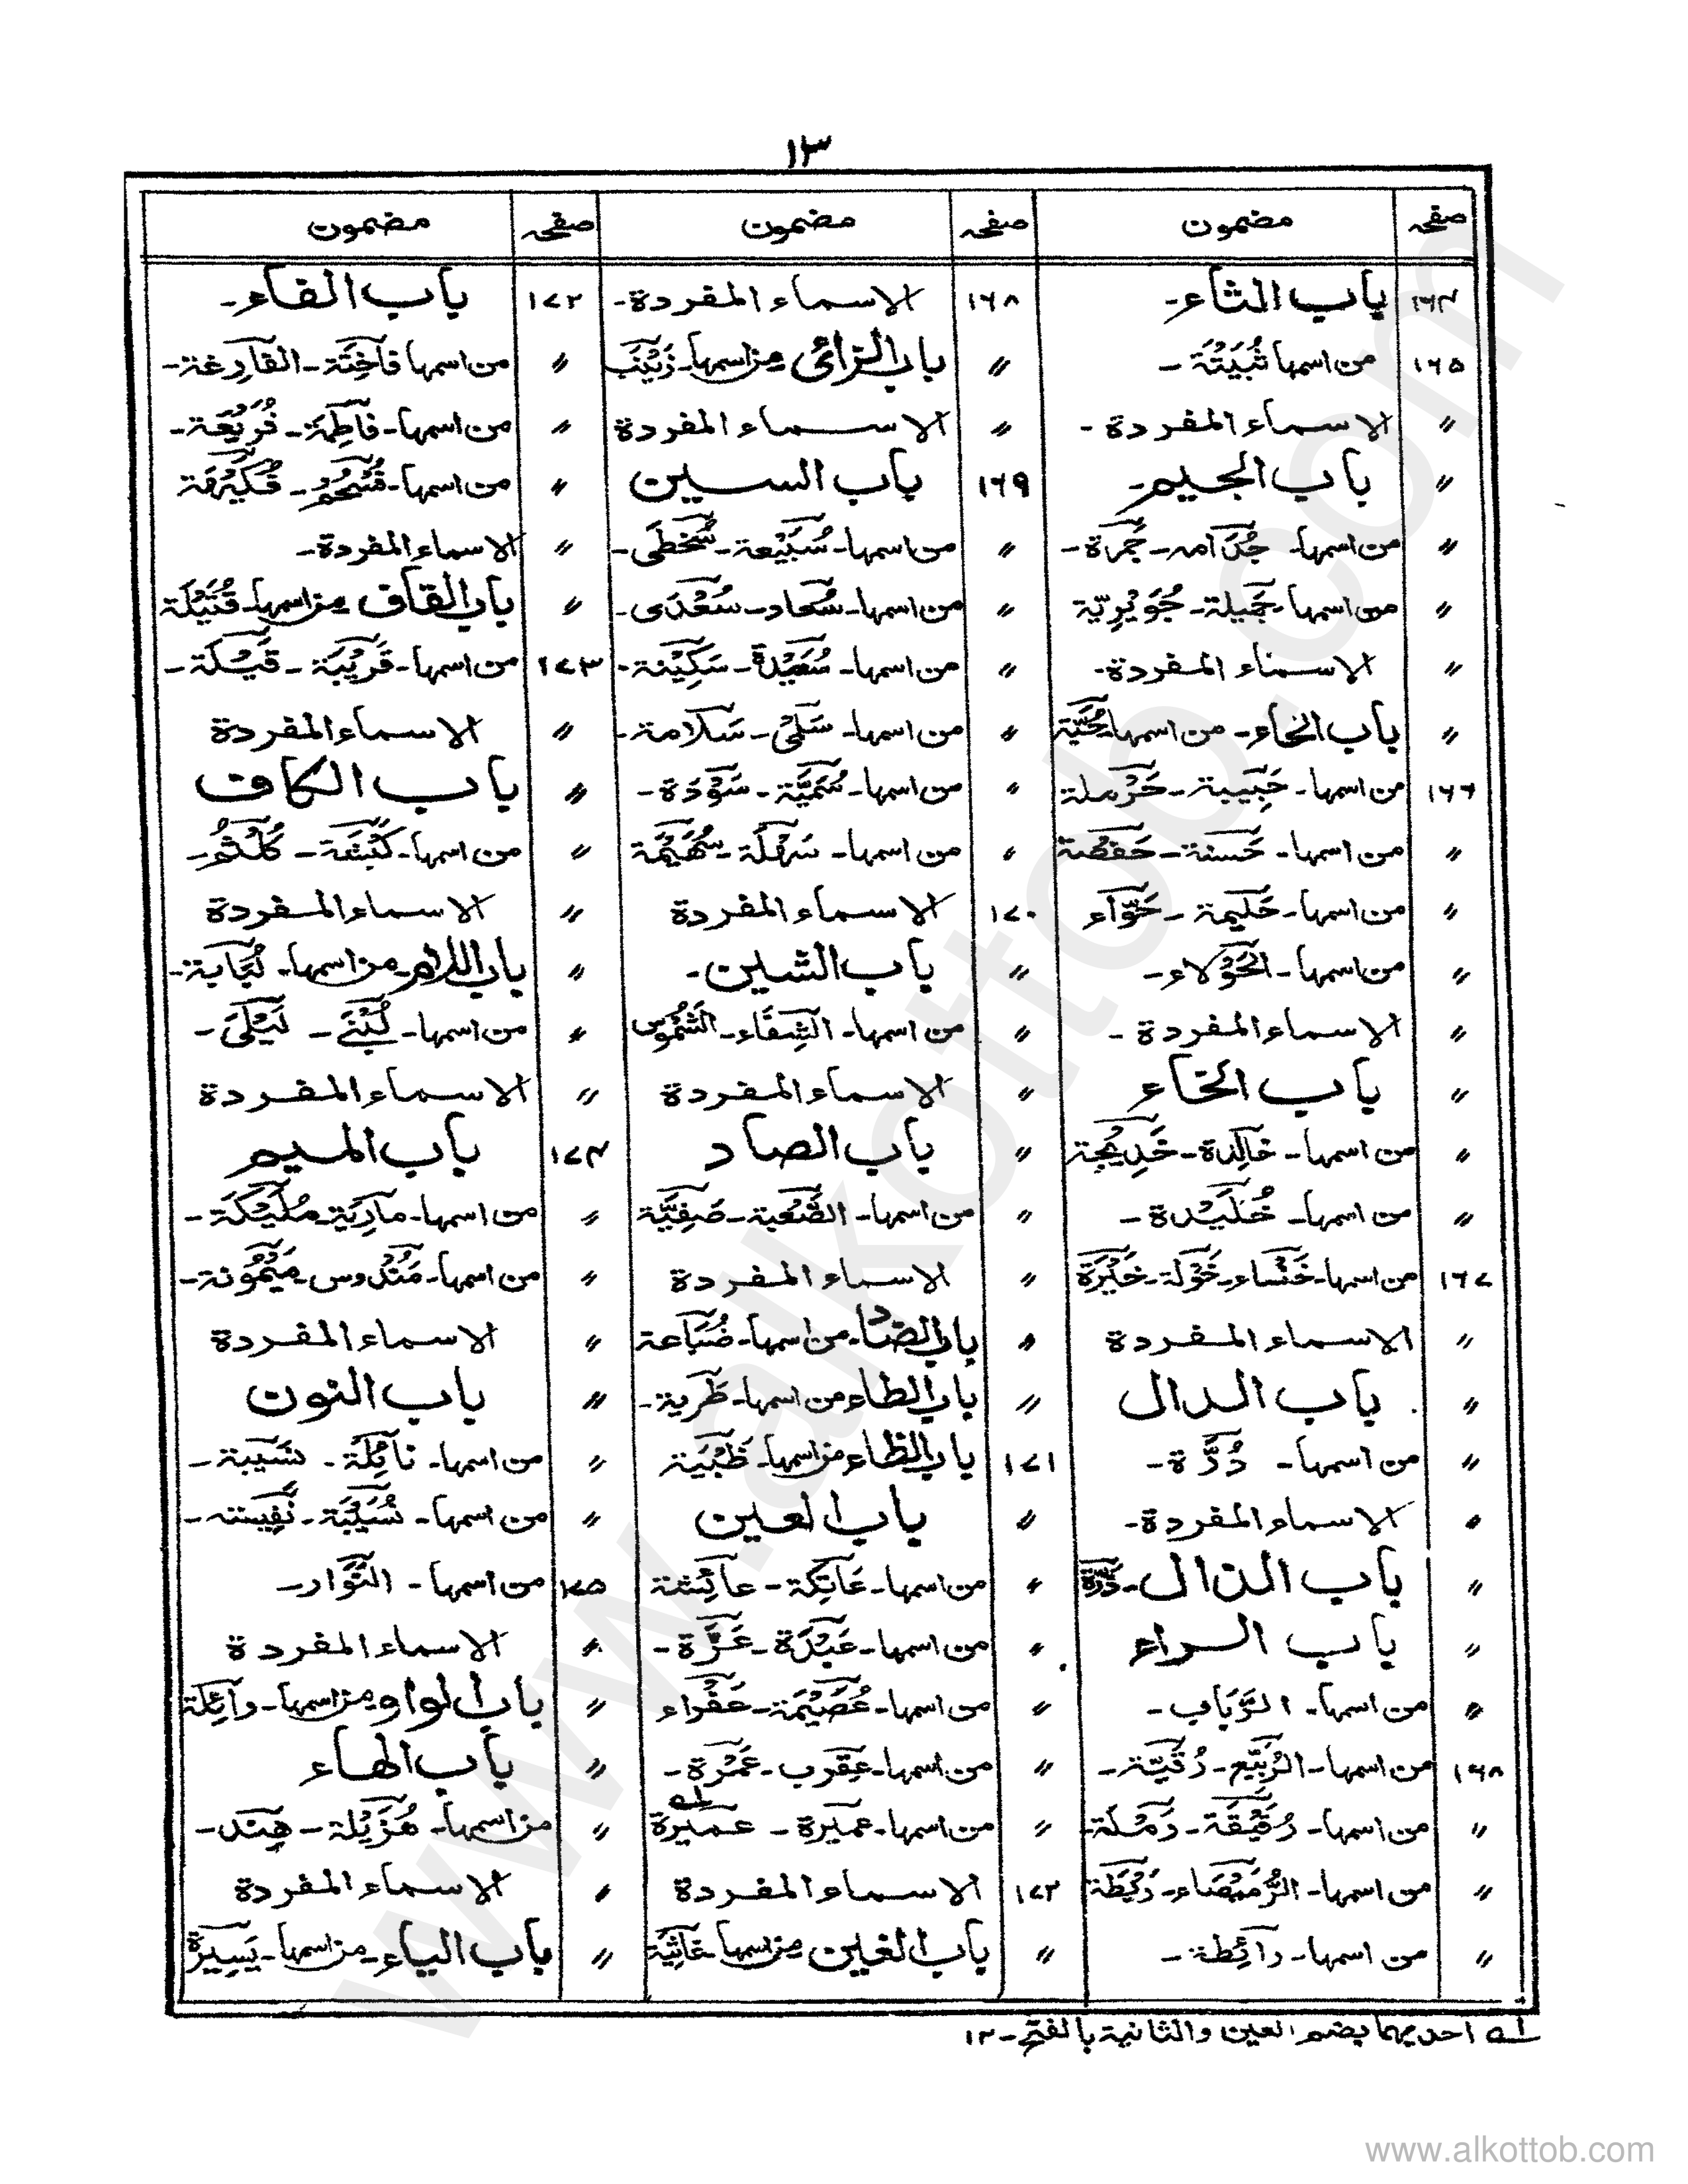 ١٣
صفحہ مضمون صفحہ مضمون صفحہ مضمون
١٦٤ باب الثاء-
١٦٥ من اسمها ثُبَيْتَة -
〃 الاسماء المفردة -
〃 باب الجيم-
〃 من اسمها- جُدَامہ- جَمْرة -
〃 من اسمها- جَمِيلة- جُوَيْرِيّة
〃 الاسماء المفردة-
〃 باب الحاء- من اسمها-
١٦٦ من اسمها- حَبِيبة- حَرْملة
〃 من اسمها- حَسنة- حَفصة
〃 من اسمها- حَلِيمة - حَوّاء
〃 من اسمها- الحَوْلاء-
〃 الاسماء المفردة -
〃 باب الخاء
〃 من اسمها- خالِدة- خَدِيجة
〃 من اسمها- خُلَيْدة -
١٦٧ من اسمها- خَنْساء- خَوْلَة- خَيْرَة
〃 الاسماء المفردة
〃 باب الدال
〃 من اسمها- دُرَّة-
〃 الاسماء المفردة-
〃 باب الذال-
〃 باب الراء
〃 من اسمها- الرَّبَاب-
١٦٨ من اسمها- الرُّبَيِّع- رُقَيّة-
〃 من اسمها- رُقَيْقَة- رَمْلَة-
〃 من اسمها- الرُّمَيْصَاء-
〃 من اسمها- رائِطة-
١٦٨ الاسماء المفردة-
〃 باب الزائ من اسمها- زَيْنَب
〃 الاسماء المفردة
١٦٩ باب السين
〃 من اسمها- سُبَيْعة- سُخْطَى-
〃 من اسمها- سُعاد- سُعْدَى-
〃 من اسمها- سُعَيْدة- سَكِيْنة-
〃 من اسمها- سَلْمٰى- سَلامة-
〃 من اسمها- سُمَيَّة- سَوْدَة-
〃 من اسمها- سَهْلَة- سُهَيْمَة
١٧٠ الاسماء المفردة
〃 باب الشين-
〃 من اسمها- الشِّفَاء- الشَّمُوس
〃 الاسماء المفردة
〃 باب الصاد
〃 من اسمها- الصَّعْبة- صَفِيَّة
〃 الاسماء المفردة
〃 باب الضاد- من اسمها- ضُبَاعة
〃 باب الطاء من اسمها- طَرِية-
١٧١ باب الظاء من اسمها- ظَبْيَة
〃 باب العين
〃 من اسمها- عَاتِكة- عائِشة
〃 من اسمها- عَبْدَة- عَزَّة-
〃 من اسمها- عُصَيْمَة- عَفْراء
〃 من اسمها- عقرب- عَمْرة-
〃 من اسمها- عميرة- عميرة لہ
١٧٢ الاسماء المفردة
〃 باب الغين من اسمها-
١٧٢ باب الفاء-
〃 من اسمها فاخِتَة- الفارِعة-
〃 من اسمها- فاطِمَة- فُرَيْعَة-
〃 من اسمها- فُسْحُم- فُكَيْهَة
〃 الاسماء المفردة-
〃 باب القاف- من اسمها- قُتَيْلَة
١٧٣ من اسمها- قَرِيْبَة- قَيْلَة-
〃 الاسماء المفردة
〃 باب الكاف
〃 من اسمها- كَبْشَة- كُلْثُوم-
〃 الاسماء المفردة
〃 باب اللام- من اسمها- لُبَابة-
〃 من اسمها- لُبْنَى- لَيْلَى-
〃 الاسماء المفردة
١٧٤ باب الميم
〃 من اسمها- مارِيَة- مُلَيْكَة-
〃 من اسمها- مَنْدُوس- مَيْمُونة-
〃 الاسماء المفردة
〃 باب النون
〃 من اسمها- نائِلَة- نَسِيبة-
〃 من اسمها- نُسَيْبَة- نَفِيسة-
١٧٥ من اسمها- النَّوَّار-
〃 الاسماء المفردة
〃 باب الواو من اسمها- وائلة
〃 باب الهاء
〃 من اسمها- هُزَيْلة- هِند-
〃 الاسماء المفردة
〃 باب الياء- من اسمها- يَسِيرة
لہ احديهما بضم العين والثانية بالفتح-١٢
www.alkottob.com
www.alkottob.com